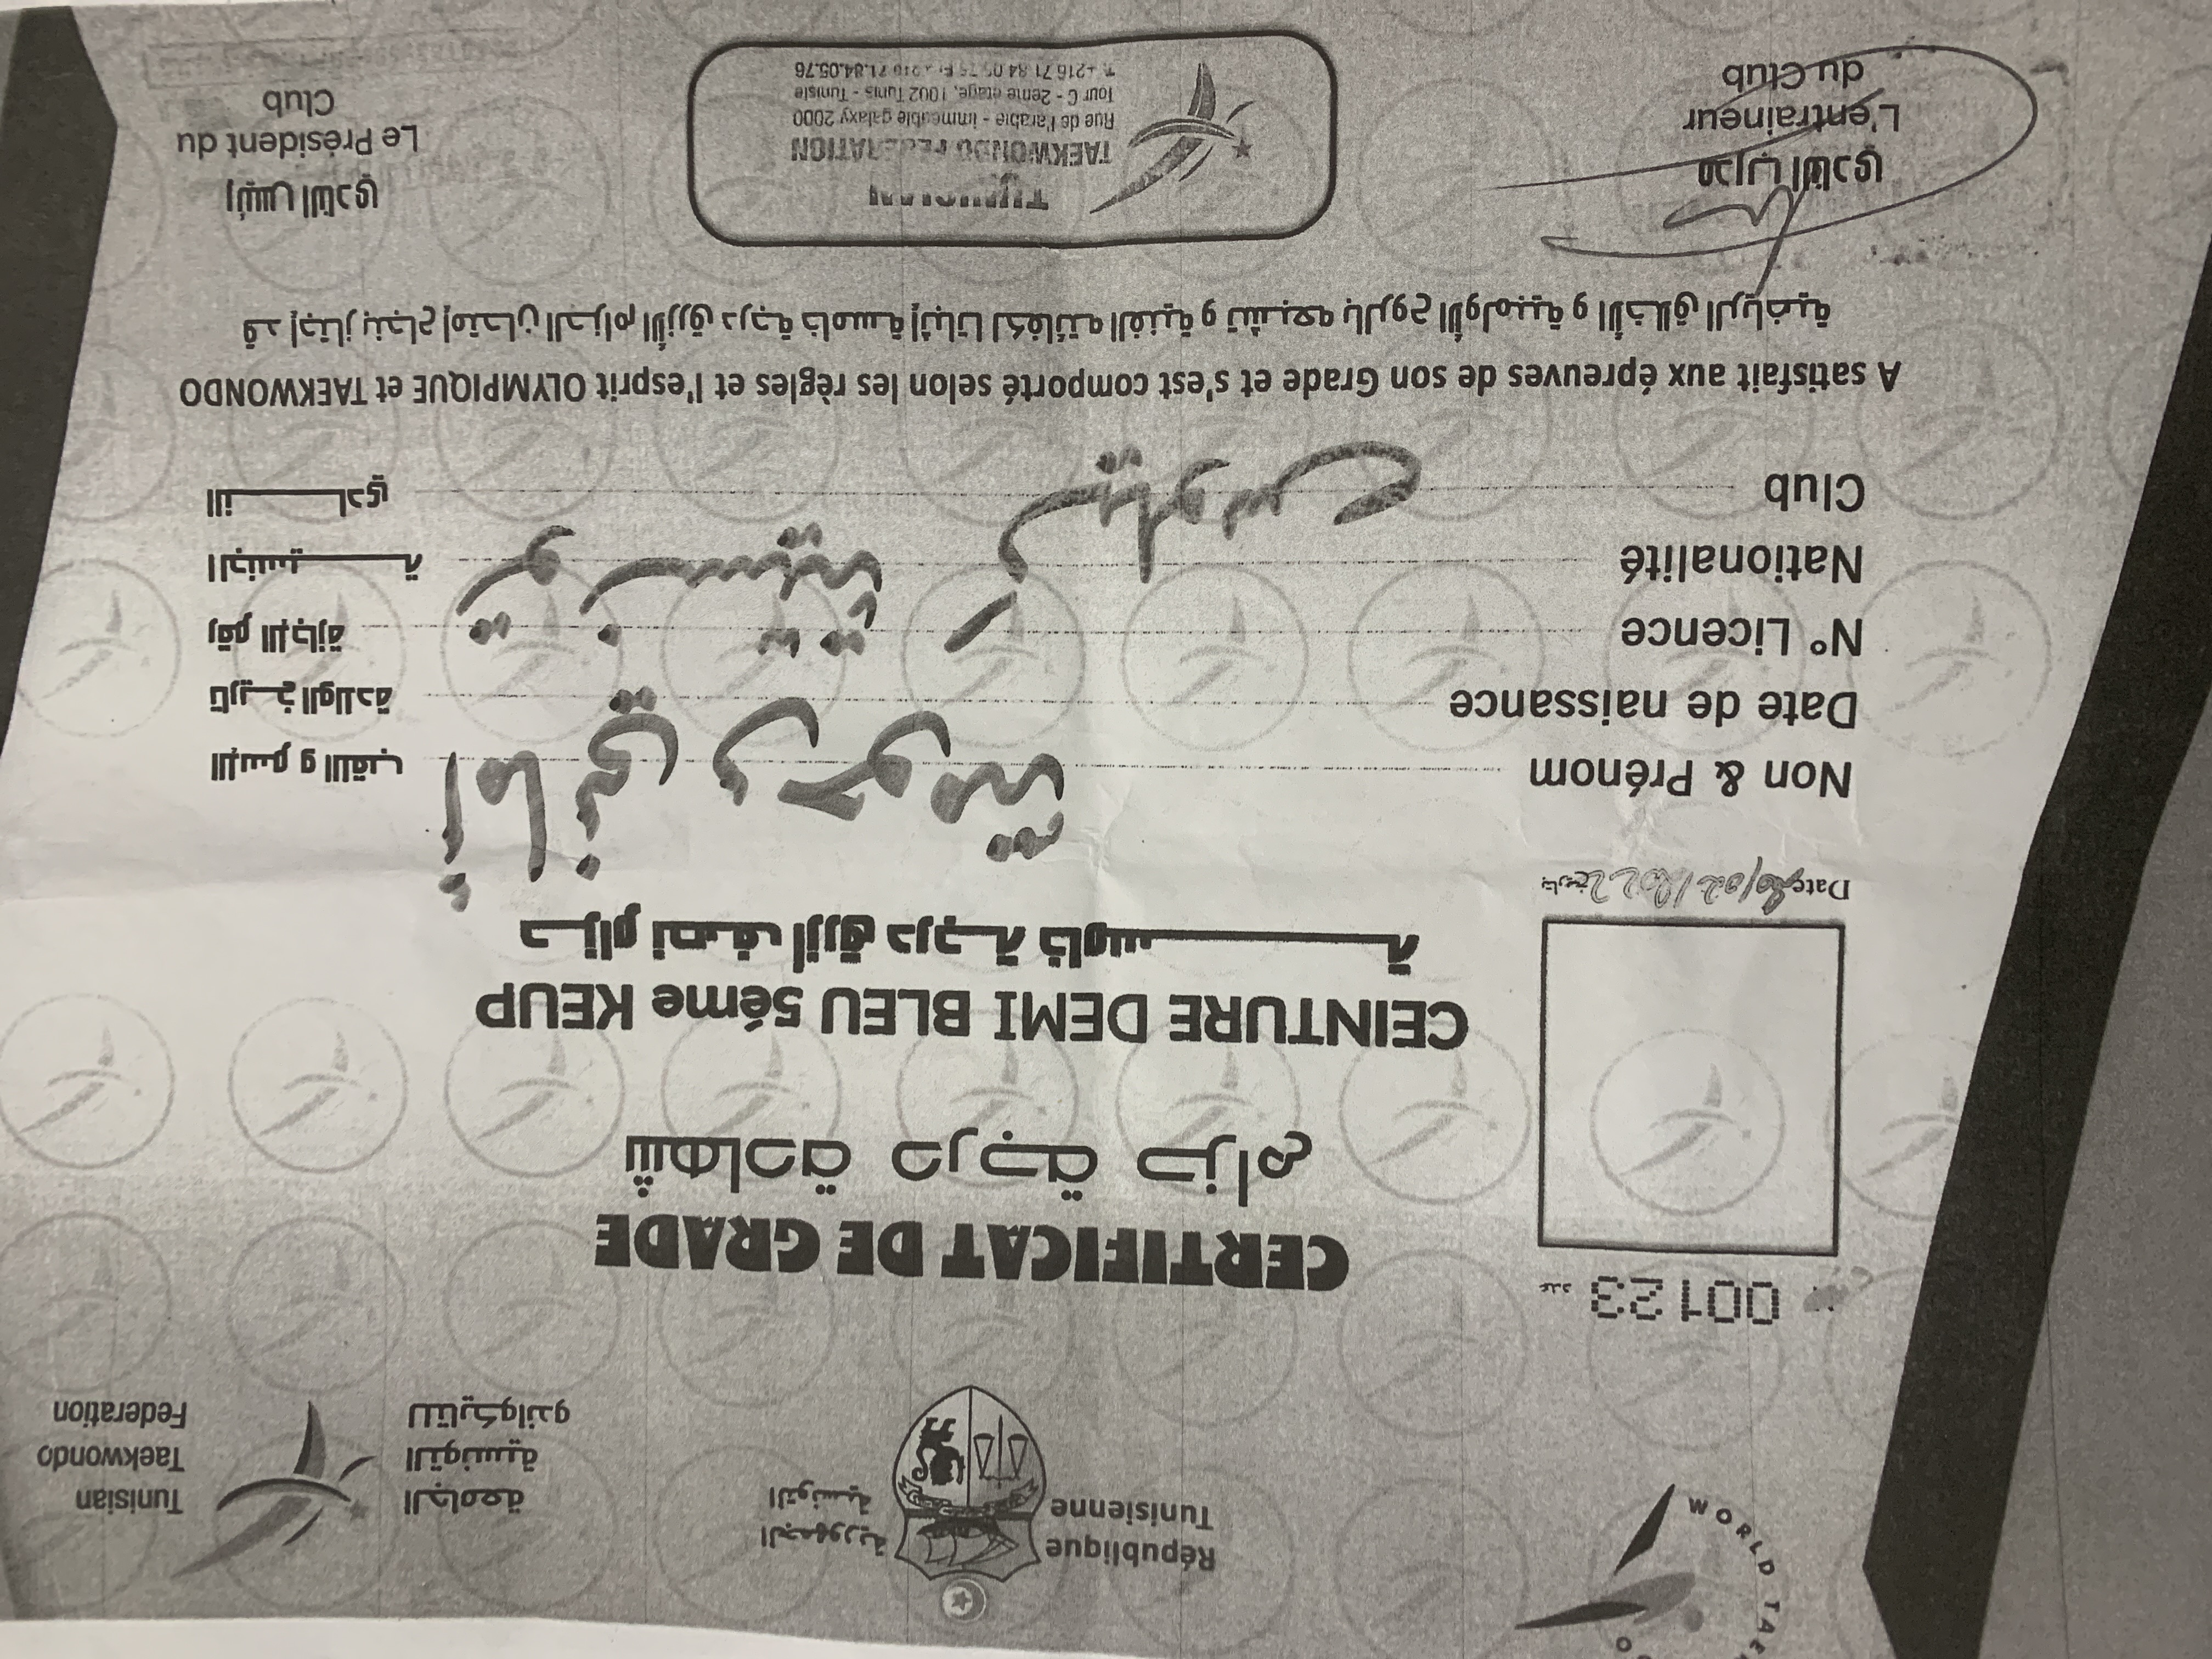 WORLD TAE
République
Tunisienne
الجمهورية
التونسية
الجامعة
التونسية
للتايكواندو
Tunisian
Taekwondo
Federation
00123 عدد
CERTIFICAT DE GRADE
شهادة درجة حزام
CEINTURE DEMI BLEU 5éme KEUP
حزام نصف أزرق درجة خامسة
Date 02/2022 تاريخ
Non & Prénom أماني الإسم و اللقب
Date de naissance تاريخ الولادة
N° Licence رقم الإجازة
Nationalité تونسية الجنسية
Club النادي
A satisfait aux épreuves de son Grade et s'est comporté selon les règles et l'esprit OLYMPIQUE et TAEKWONDO
قد إجتاز بنجاح إمتحان الحزام الأزرق درجة خامسة إثباتا لكفائته الفنية و تشبعه بالروح الأولمبية و الأخلاق الرياضية
مدرب النادي
L'entraineur
du Club
TAEKWONDO FEDERATION
Rue de l'arabie - immeuble galaxy 2000
Tour C - 2eme étage, 1002 Tunis - Tunisie
71.84.05.76
رئيس النادي
Le Président du
Club